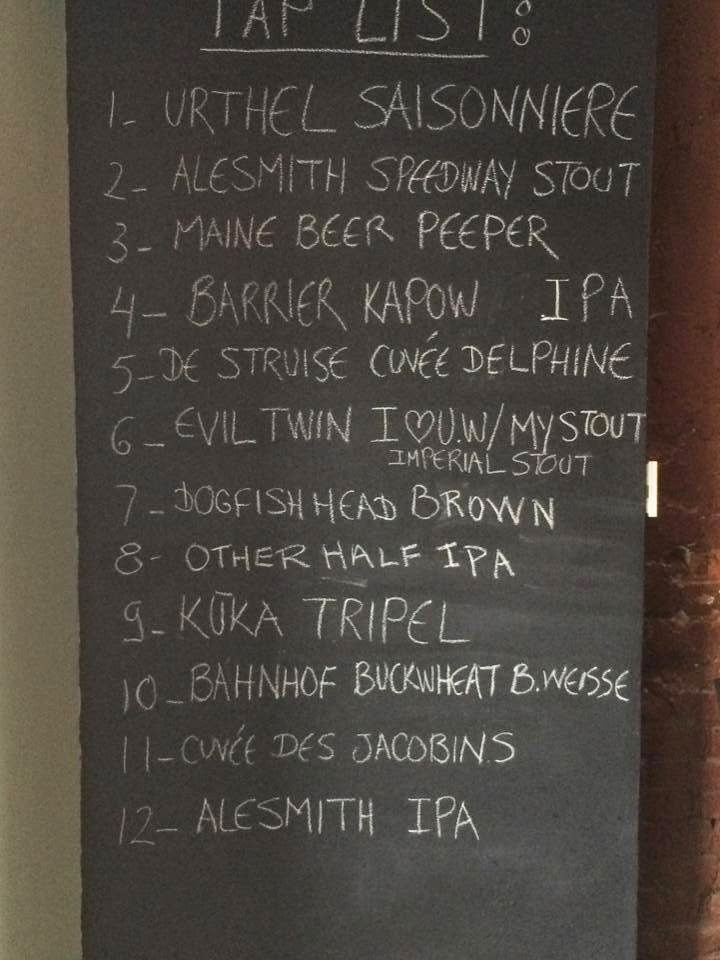 TAP LIST:
1- URTHEL SAISONNIERE
2- ALESMITH SPEEDWAY STOUT
3- MAINE BEER PEEPER
4- BARRIER KAPOW IPA
5- DE STRUISE CUVÉE DELPHINE
6- EVIL TWIN I ♡ U.W/ MY STOUT
IMPERIAL STOUT
7- DOGFISH HEAD BROWN
8- OTHER HALF IPA
9- KŪKA TRIPEL
10- BAHNHOF BUCKWHEAT B.WEISSE
11- CUVÉE DES JACOBINS
12- ALESMITH IPA